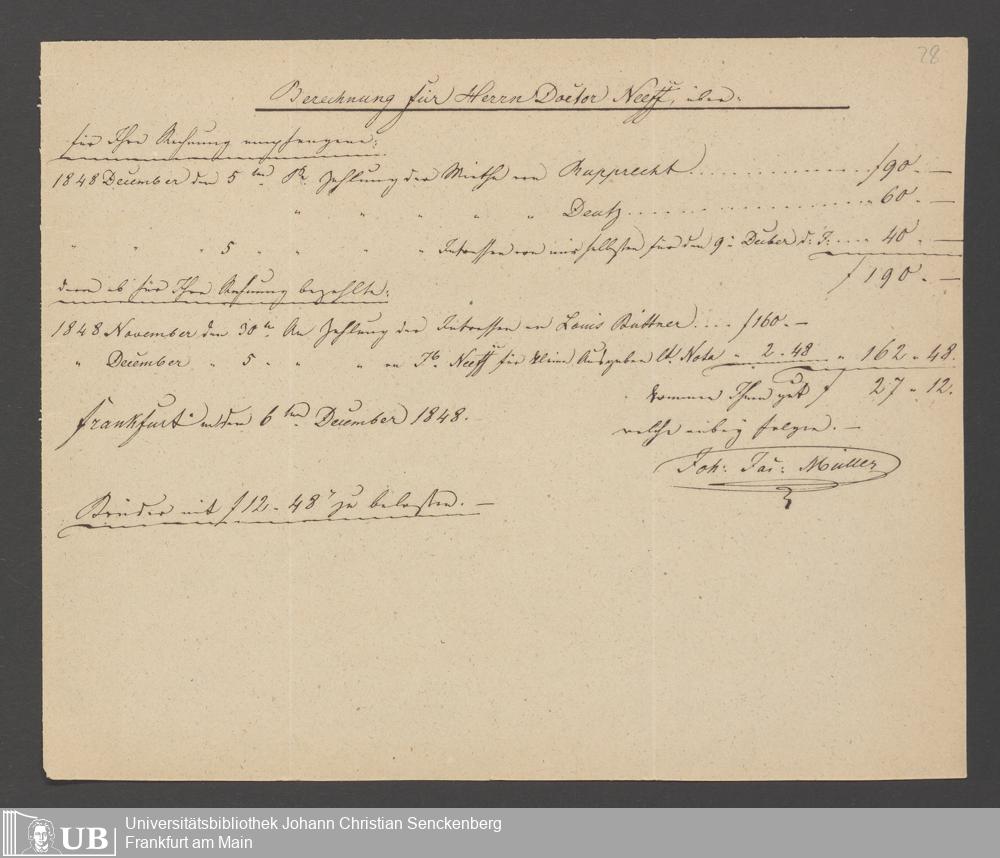 28
Berechnung für Herrn Doctor Neeff, über:
für Ihre Rechnung empfangene:
1848 December den 5ten Pr Zahlung der Miethe von Rupprecht. . . . . . . . . . . . . . f 90. —
" " " " " Deutz . . . . . . . . . . . . . . . . . " 60. —
" " " 5 " " " " Intressen von mir selbsten für den 9. Decber d: J: . . . . " 40. —
f 190. —
dann ab für Ihre Rechnung bezahlte:
1848 November den 30ten An Zahlung der Intressen an Louis Büttner . . . . f 160. —
" December " 5 " " " an Neeff für kleine Ausgaben lt. Nota " 2 - 48 " 162 " 48.
kommen Ihnen gut f 27 " 12.
Frankfurt den 6ten December 1848.
welche anbey folgen. —
Joh: Jac: Müller
mit f 12 - 48 zu belasten. —
UB Universitätsbibliothek Johann Christian Senckenberg
Frankfurt am Main